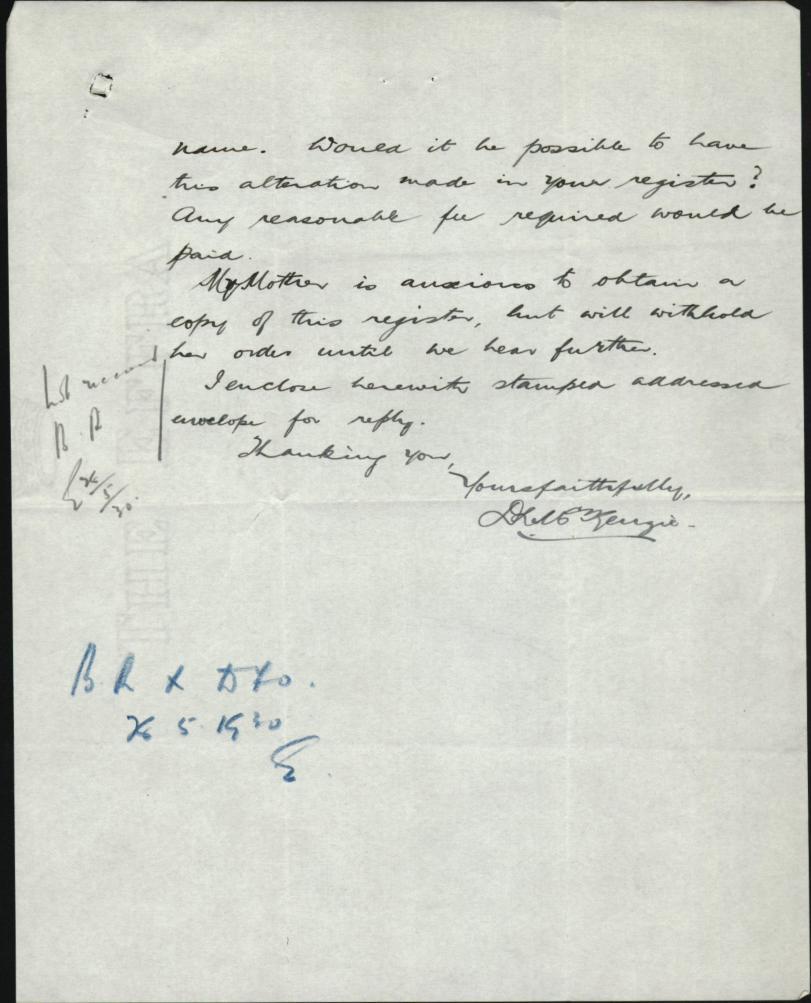 name. Would it be possible to have
this alteration made in your register?
Any reasonable fee required would be
paid.
My Mother is anxious to obtain a
copy of this register, but will withhold
her order until we hear further.
I enclose herewith stamped addressed
envelope for reply.
Thanking you,
Yours faithfully,
McKenzie.
not received
B. R
26/5/30.
B R
26 5 1930